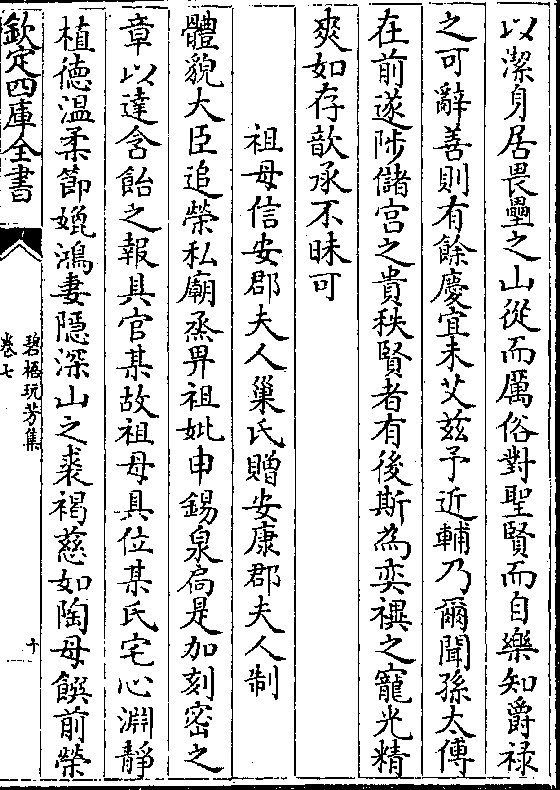 以潔身居畏壘之山從而厲俗對聖賢而自樂知爵祿
之可辭善則有餘慶宜未艾兹予近輔乃爾聞孫太傅
在前遂陟儲宫之貴秩賢者有後斯為奕禩之寵光精
爽如存歆承不昧可
祖母信安郡夫人巢氏贈安康郡夫人制
體貌大臣追榮私廟烝畀祖妣申錫泉扃是加刻密之
章以達含飴之報具官某故祖母具位某氏宅心淵靜
植徳温柔節媲鴻妻隱深山之裘褐慈如陶母饌前榮
欽定四庫全書
碧梧玩芳集
卷七
十